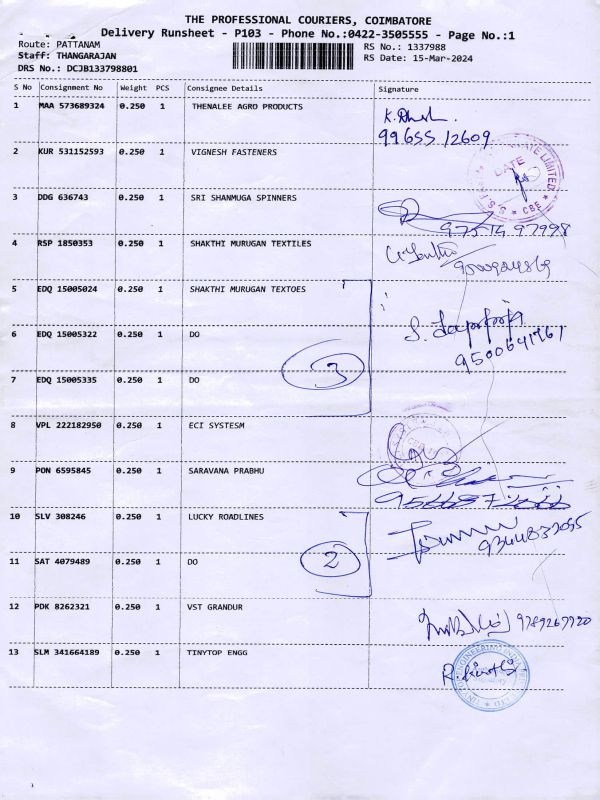 THE PROFESSIONAL COURIERS, COIMBATORE
Delivery Runsheet - P103 - Phone No.:0422-3505555 - Page No.:1
Route: PATTANAM
RS No.: 1337988
Staff: THANGARAJAN
RS Date: 15-Mar-2024
DRS No.: DCJB133798801
S No Consignment No Weight PCS Consignee Details Signature
1 MAA 573689324 0.250 1 THENALEE AGRO PRODUCTS
99655 12609
2 KUR 531152593 0.250 1 VIGNESH FASTENERS
DATE
LIMITED
CBE
3 DDG 636743 0.250 1 SRI SHANMUGA SPINNERS
97998
4 RSP 1850353 0.250 1 SHAKTHI MURUGAN TEXTILES
5 EDQ 15005024 0.250 1 SHAKTHI MURUGAN TEXTOES
6 EDQ 15005322 0.250 1 DO
9500641761
3
7 EDQ 15005335 0.250 1 DO
8 VPL 222182950 0.250 1 ECI SYSTESM
9 PON 6595845 0.250 1 SARAVANA PRABHU
10 SLV 308246 0.250 1 LUCKY ROADLINES
9344833055
2
11 SAT 4079489 0.250 1 DO
12 PDK 8262321 0.250 1 VST GRANDUR
9789267720
13 SLM 341664189 0.250 1 TINYTOP ENGG